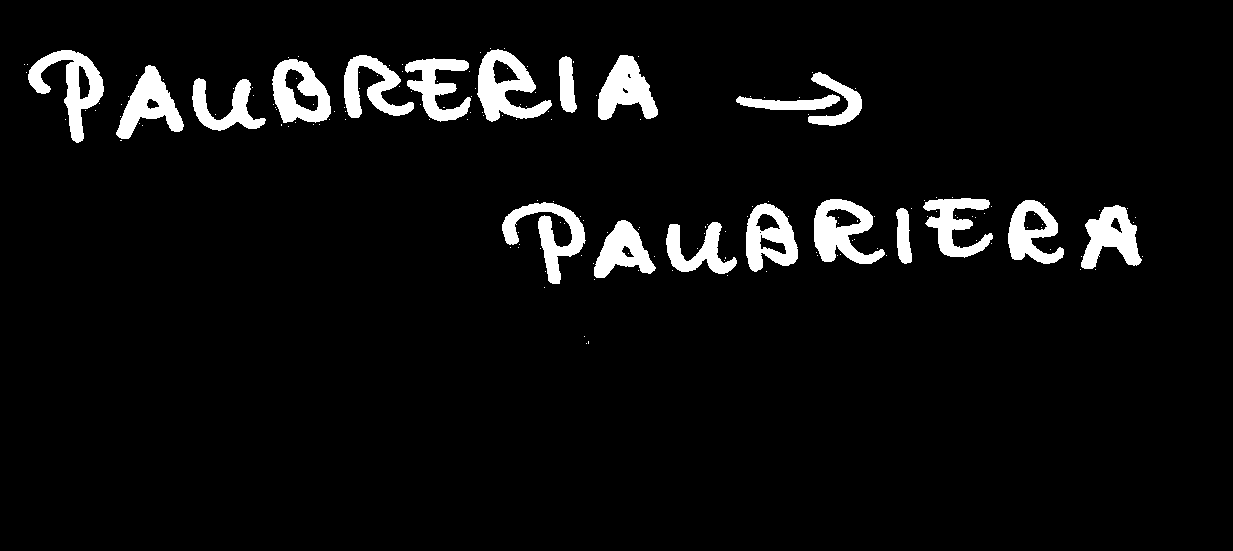 PAUBRERIA →
PAUBRIERA